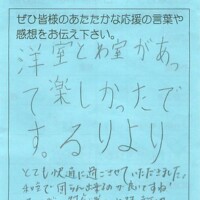 ぜひ皆様のあたたかな応援の言葉や
感想をお伝え下さい。
洋室と和室があっ
て楽しかったで
す。るりより
とても快適に過ごさせていただきました。